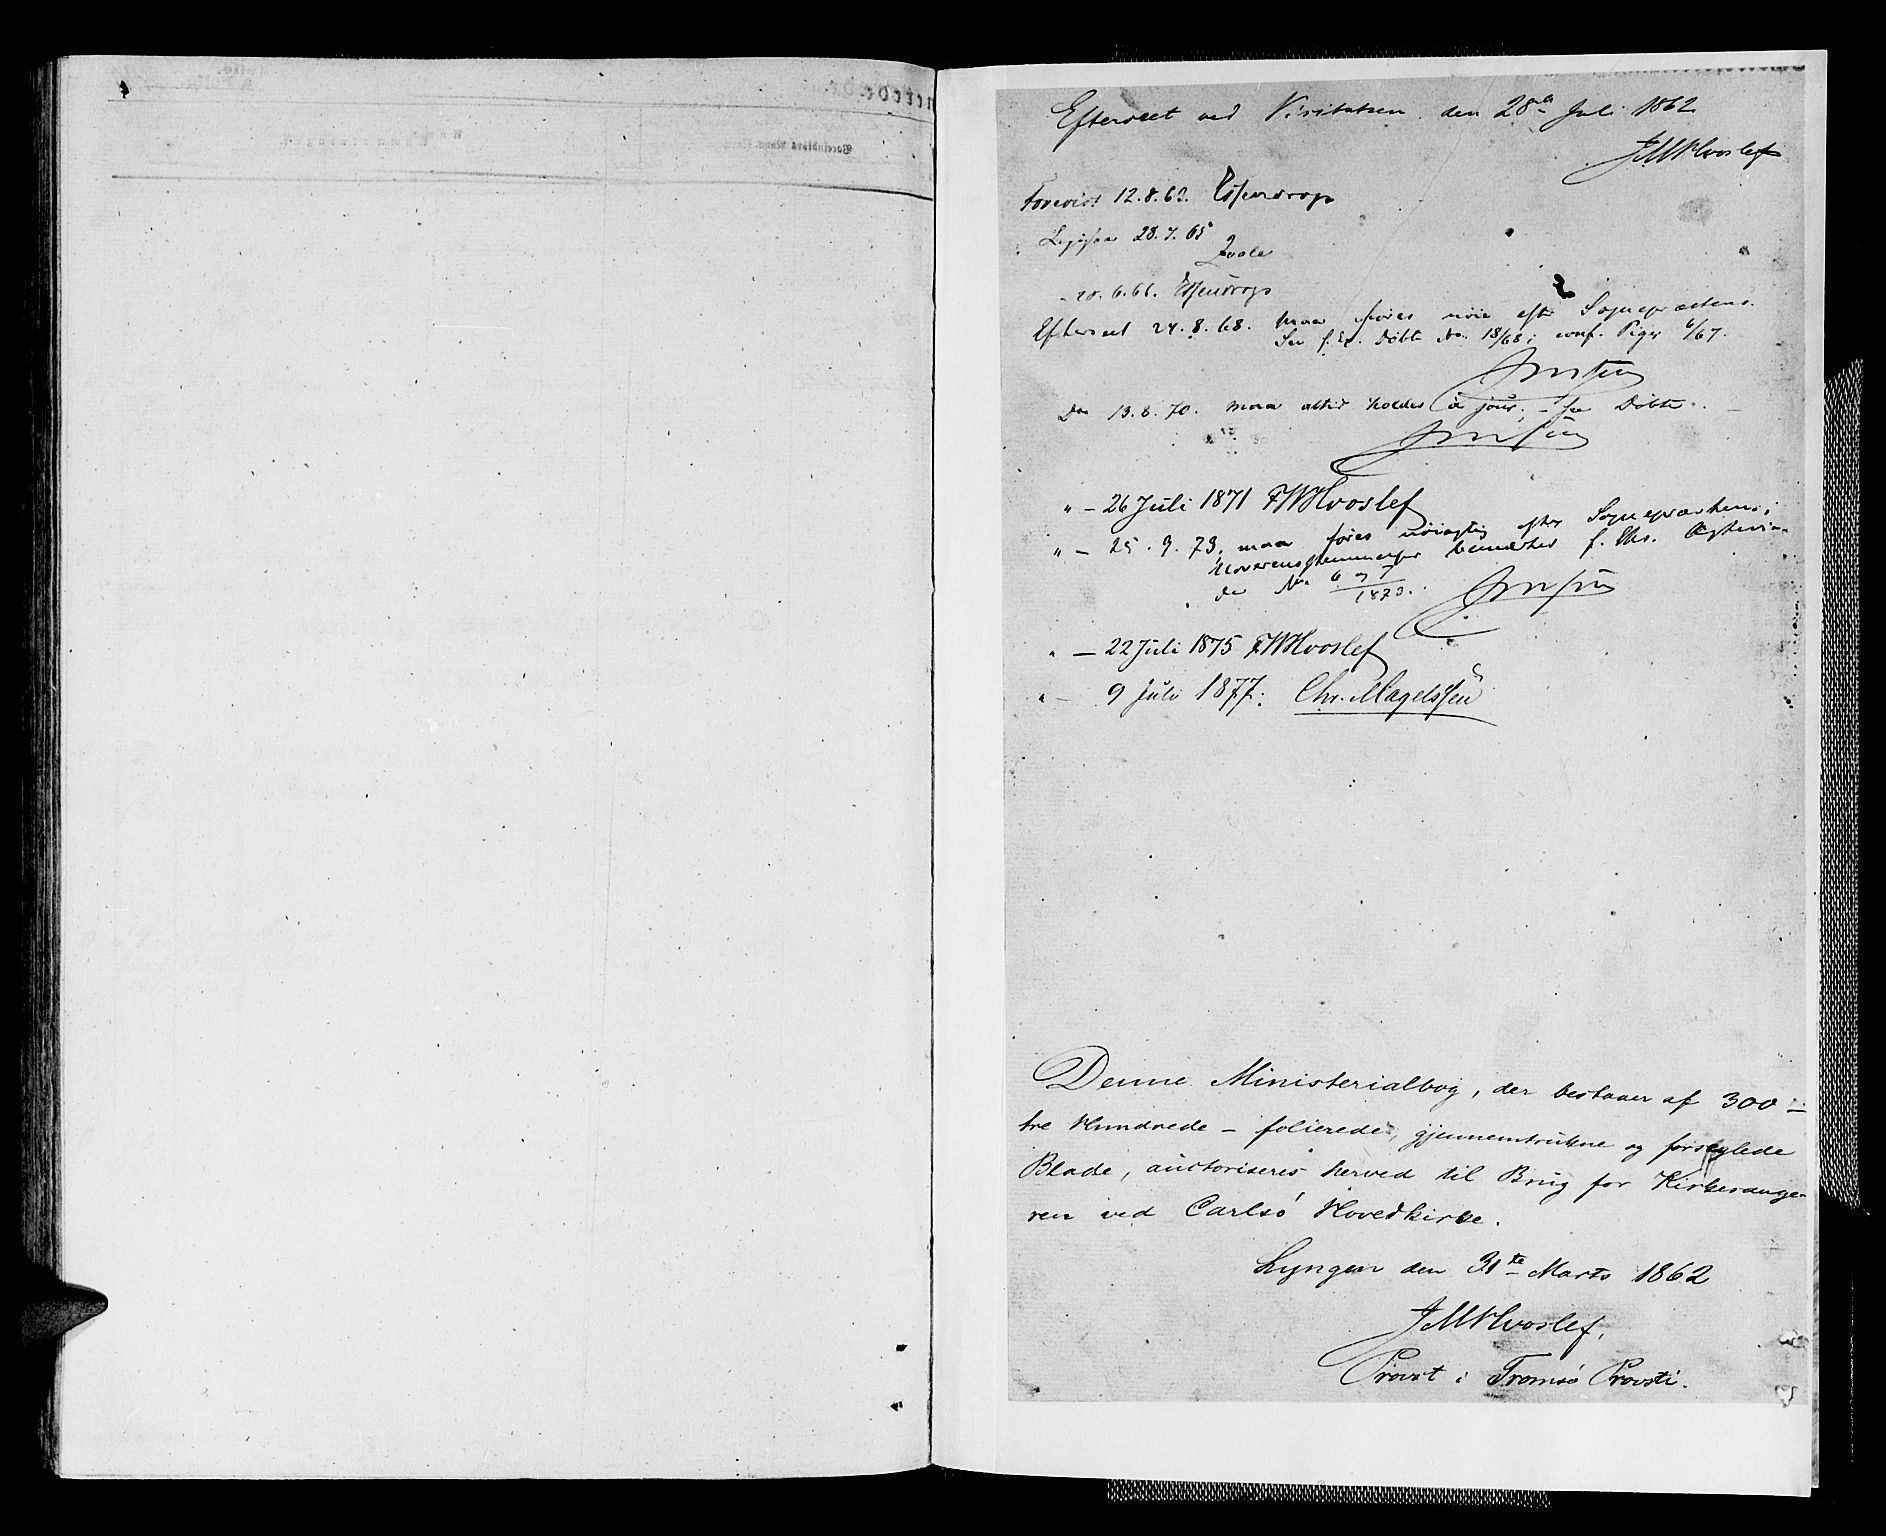 Efterseet ved Visitatsen den 28de Juli 1862
JMHvoslef
Forevist 12.8.63. Essendrop
Ligesaa 28.7.65
Qvale
- 20.6.66. Essendrop
Efterseet 24.8.68. maa føres nøie efter Sognepræstens.
See f. Ex. Døbte No. 18/68; conf. Piger 6/67.
Do 13.8.70. maa altid holdes à jour; - see Døbte. -
" - 26 Juli 1871 FWHvoslef
" - 25.9.73. maa føres nøiagtig efter Sognepræstens;
Uoverensstemmelser bemærket f. Eks. Ægtevie-
de No 6 og 7
1873.
" - 22 Juli 1875 FWHvoslef
" - 9 Juli 1877: Chr. Magelssen
Denne Ministerialbog, der bestaaer af 300 -
tre Hundrede - folierede, gjennemtrukne og forseglede
Blade, auctoriseres herved til Brug for Kirkesange-
ren ved Carlsö Hovedkirke.
Lyngen den 31te Marts 1862
JMHvoslef,
Provst i Tromsö Provsti.